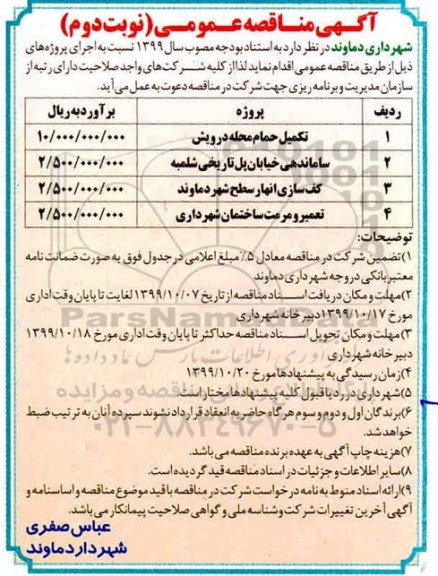 آگهی مناقصه عمومی (نوبت دوم)
شهرداری دماوند در نظر دارد به استناد بودجه مصوب سال ۱۳۹۹ نسبت به اجرای پروژه‌های
ذیل از طریق مناقصه عمومی اقدام نماید لذا از کلیه شرکت‌های واجد صلاحیت دارای رتبه از
سازمان مدیریت و برنامه ریزی جهت شرکت در مناقصه دعوت به عمل می‌آید.
ردیف پروژه برآورد به ریال
۱ تکمیل حمام محله درویش ۱۰/۰۰۰/۰۰۰/۰۰۰
۲ ساماندهی خیابان پل تاریخی شلمبه ۲/۵۰۰/۰۰۰/۰۰۰
۳ کف سازی انهار سطح شهر دماوند ۲/۵۰۰/۰۰۰/۰۰۰
۴ تعمیر و مرمت ساختمان شهرداری ۲/۵۰۰/۰۰۰/۰۰۰
توضیحات:
۱)تضمین شرکت در مناقصه معادل ۵٪ مبلغ اعلامی در جدول فوق به صورت ضمانت نامه
معتبر بانکی در وجه شهرداری دماوند
۲)مهلت و مکان دریافت اسناد مناقصه از تاریخ ۱۳۹۹/۱۰/۰۷ لغایت تا پایان وقت اداری
مورخ ۱۳۹۹/۱۰/۱۷ دبیرخانه شهرداری
۳)مهلت و مکان تحویل اسناد مناقصه حداکثر تا پایان وقت اداری مورخ ۱۳۹۹/۱۰/۱۸
دبیرخانه شهرداری
۴)زمان رسیدگی به پیشنهادها مورخ ۱۳۹۹/۱۰/۲۰
۵)شهرداری در رد یا قبول کلیه پیشنهادها مختار است
۶)برندگان اول و دوم و سوم هرگاه حاضر به انعقاد قرارداد نشوند سپرده آنان به ترتیب ضبط
خواهد شد.
۷)هزینه چاپ آگهی به عهده برنده مناقصه می باشد.
۸)سایر اطلاعات و جزئیات در اسناد مناقصه قید گردیده است.
۹)ارائه اسناد منوط به نامه درخواست شرکت در مناقصه با قید موضوع مناقصه و اساسنامه و
آگهی آخرین تغییرات شرکت و شناسه ملی و گواهی صلاحیت پیمانکار می باشد.
عباس صفری
شهردار دماوند
ParsNamadData
۰۲۱-۸۸۳۴۹۶۷۰-۵